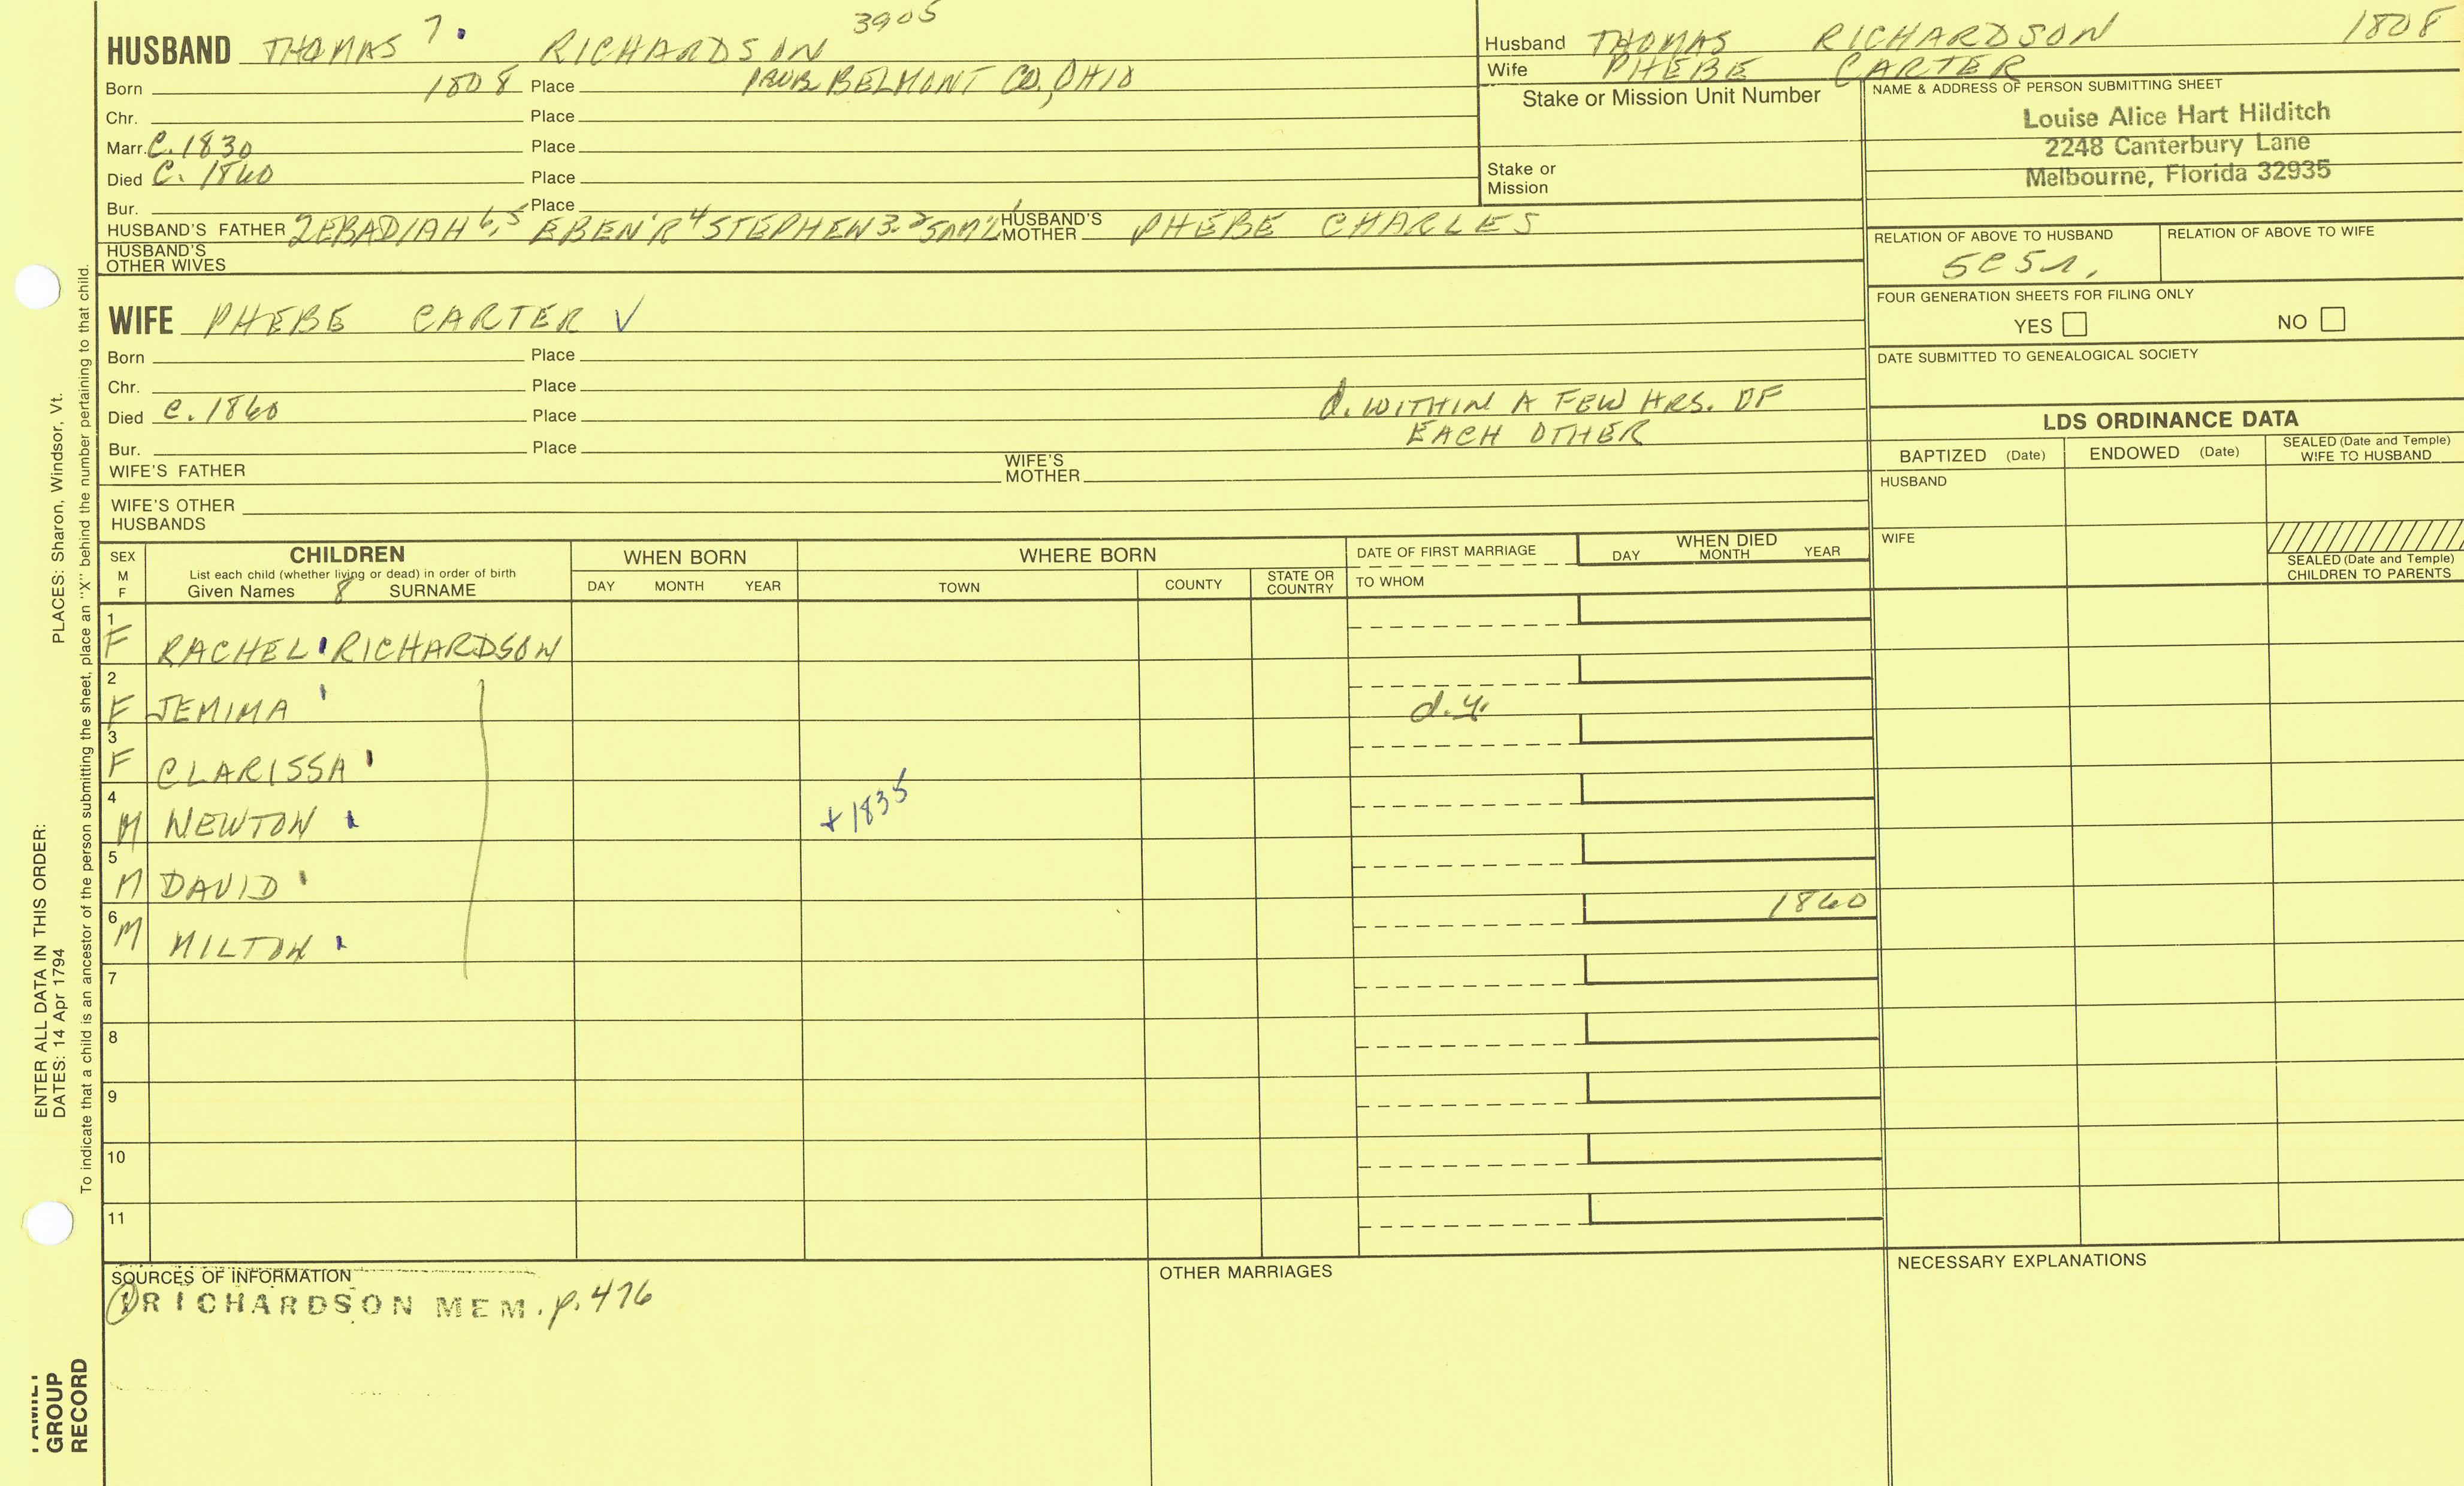 HUSBAND THOMAS 7. RICHARDSON 3905
Born 1808 Place PROB. BELMONT CO., OHIO
Chr. Place
Marr. C. 1830 Place
Died C. 1860 Place
Bur. Place
HUSBAND'S FATHER ZEBADIAH 6,5 EBEN'R 4 STEPHEN 3,2 SAM'L 1 HUSBAND'S MOTHER PHEBE CHARLES
HUSBAND'S OTHER WIVES
Husband THOMAS RICHARDSON 1808
Wife PHEBE CARTER
Stake or Mission Unit Number
Stake or Mission
NAME & ADDRESS OF PERSON SUBMITTING SHEET
Louise Alice Hart Hilditch
2248 Canterbury Lane
Melbourne, Florida 32935
RELATION OF ABOVE TO HUSBAND RELATION OF ABOVE TO WIFE
5C5R.
FOUR GENERATION SHEETS FOR FILING ONLY
YES NO
DATE SUBMITTED TO GENEALOGICAL SOCIETY
WIFE PHEBE CARTER V
Born Place
Chr. Place
Died c. 1860 Place d. WITHIN A FEW HRS. OF
EACH OTHER
Bur. Place
WIFE'S FATHER WIFE'S MOTHER
WIFE'S OTHER HUSBANDS
LDS ORDINANCE DATA
BAPTIZED (Date) ENDOWED (Date) SEALED (Date and Temple) WIFE TO HUSBAND
HUSBAND
WIFE
SEALED (Date and Temple) CHILDREN TO PARENTS
SEX M F CHILDREN WHEN BORN WHERE BORN DATE OF FIRST MARRIAGE WHEN DIED
List each child (whether living or dead) in order of birth
Given Names 8 SURNAME DAY MONTH YEAR TOWN COUNTY STATE OR COUNTRY TO WHOM DAY MONTH YEAR
1 F RACHEL RICHARDSON
2 F JEMIMA d.y.
3 F CLARISSA
4 M NEWTON + 1835
5 M DAVID
6 M MILTON 1860
7
8
9
10
11
SOURCES OF INFORMATION
1 RICHARDSON MEM. p. 476
OTHER MARRIAGES
NECESSARY EXPLANATIONS
ENTER ALL DATA IN THIS ORDER:
DATES: 14 Apr 1794 PLACES: Sharon, Windsor, Vt.
To indicate that a child is an ancestor of the person submitting the sheet, place an "X" behind the number pertaining to that child.
FAMILY
GROUP
RECORD